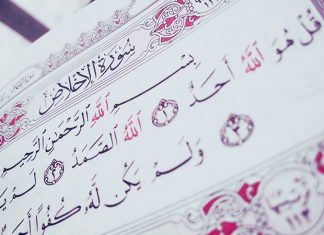 سُورَةُ الْإِخْلَاصِ
بِسْمِ ٱللَّهِ ٱلرَّحْمَٰنِ ٱلرَّحِيمِ
قُلْ هُوَ ٱللَّهُ أَحَدٌ ١ ٱللَّهُ ٱلصَّمَدُ ٢ لَمْ
٣ وَلَمْ يَكُن لَّهُۥ كُفُوًا
١١٣